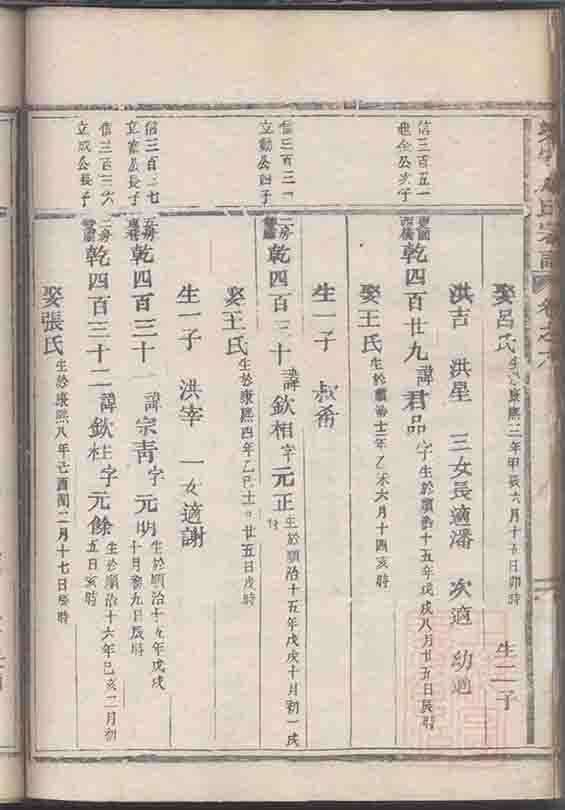 娶呂氏 生於康熙三年甲辰六月十五日卯時 生二子
洪吉 洪星 三女長適潘 次適 幼適
信三百五一
公次子
乾四百廿九 諱君品 字 生於順治十五年戊戌八月廿五日辰時
娶王氏 生於順治十二年乙未六月十四亥時
生一子 叔喬
信三百三一
立勳公四子
二房
乾四百三十 諱欽相字元正 生於順治十五年戊戌十月初一戌時
娶王氏 生於康熙四年乙巳十一廿五日戌時
生一子 洪宰 一女適謝
信三百二七
立 公長子
五房
乾四百三十一 諱宗青字元明 生於順治十五年戊戌十月初九日辰時
信三百三六
立成公長子
二房
乾四百三十二 諱欽柱字元餘 生於順治十六年己亥二月初五日亥時
娶張氏 生於康熙八年己酉閏二月十七日癸時